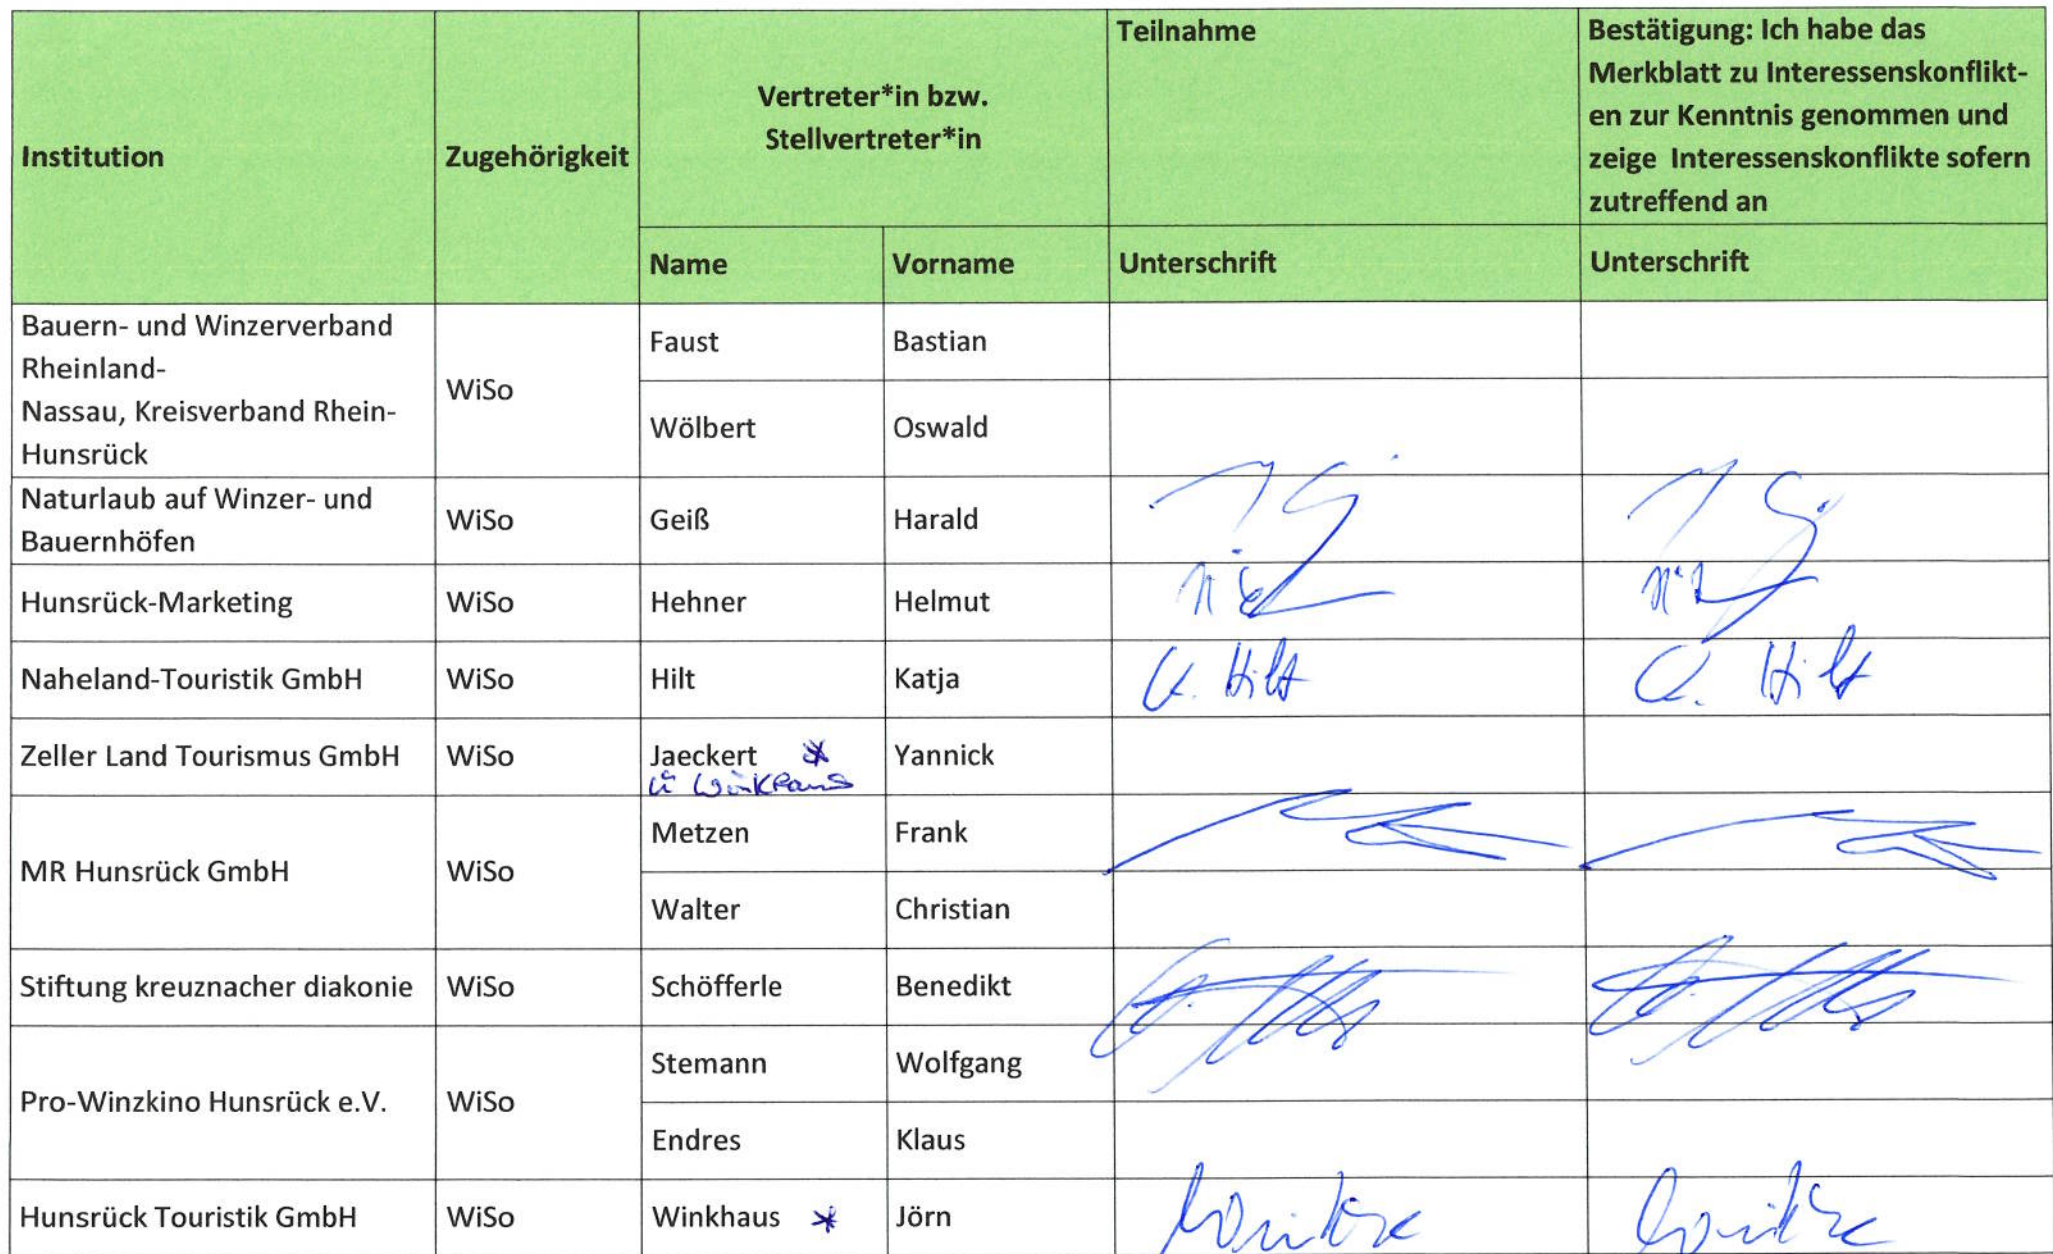 Institution
Zugehörigkeit
Vertreter*in bzw.
Stellvertreter*in
Teilnahme
Bestätigung: Ich habe das
Merkblatt zu Interessenskonflikt-
en zur Kenntnis genommen und
zeige Interessenskonflikte sofern
zutreffend an
Name
Vorname
Unterschrift
Unterschrift
Bauern- und Winzerverband
Rheinland-
Nassau, Kreisverband Rhein-
Hunsrück
WiSo
Faust
Bastian
Wölbert
Oswald
Naturlaub auf Winzer- und
Bauernhöfen
WiSo
Geiß
Harald
Hunsrück-Marketing
WiSo
Hehner
Helmut
Naheland-Touristik GmbH
WiSo
Hilt
Katja
K. Hilt
K. Hilt
Zeller Land Tourismus GmbH
WiSo
Jaeckert *
Winkhaus
Yannick
MR Hunsrück GmbH
WiSo
Metzen
Frank
Walter
Christian
Stiftung kreuznacher diakonie
WiSo
Schöfferle
Benedikt
Pro-Winzkino Hunsrück e.V.
WiSo
Stemann
Wolfgang
Endres
Klaus
Hunsrück Touristik GmbH
WiSo
Winkhaus *
Jörn